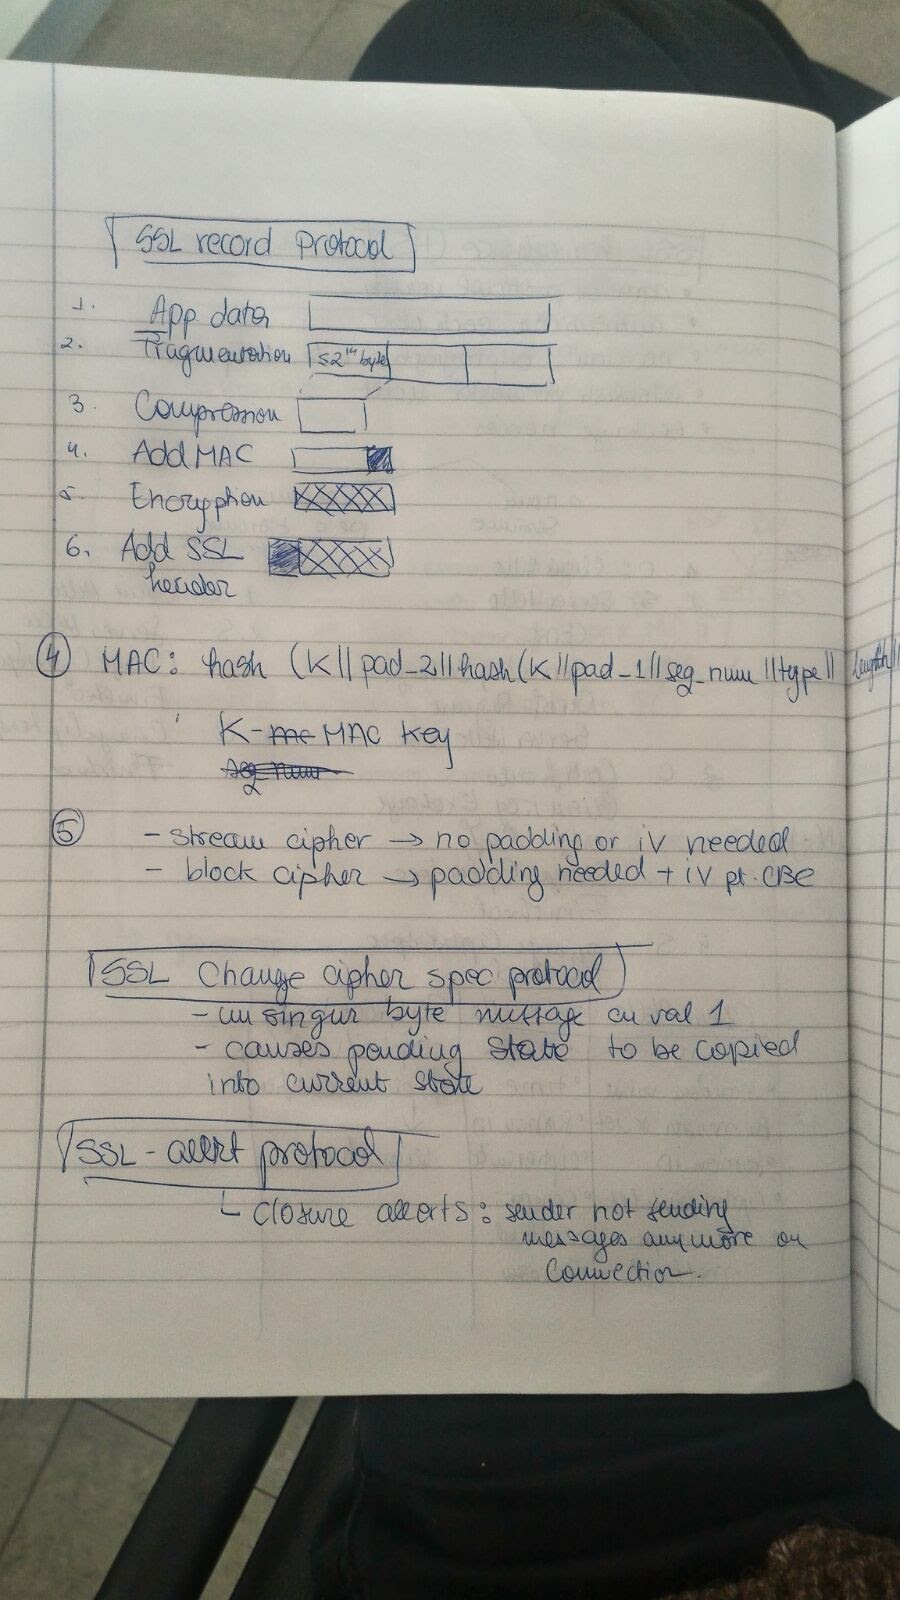 SSL record protocol
1. App data
2. Fragmentation ≤2¹⁴ byte
3. Compression
4. Add MAC
5. Encryption
6. Add SSL
header
④ MAC: hash (K||pad_2||hash(K||pad_1||seq_num||type|| length||
K - MAC key
seq num
⑤ - stream cipher → no padding or iv needed
- block cipher → padding needed + iv pt. CBC
SSL Change cipher spec protocol
- un singur byte message cu val 1
- causes pending state to be copied
into current state
SSL - alert protocol
closure alerts: sender not sending
messages anymore on
connection.